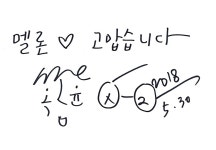 멜론 ♡ 고맙습니다
me
윤 X-2 2018
5.30